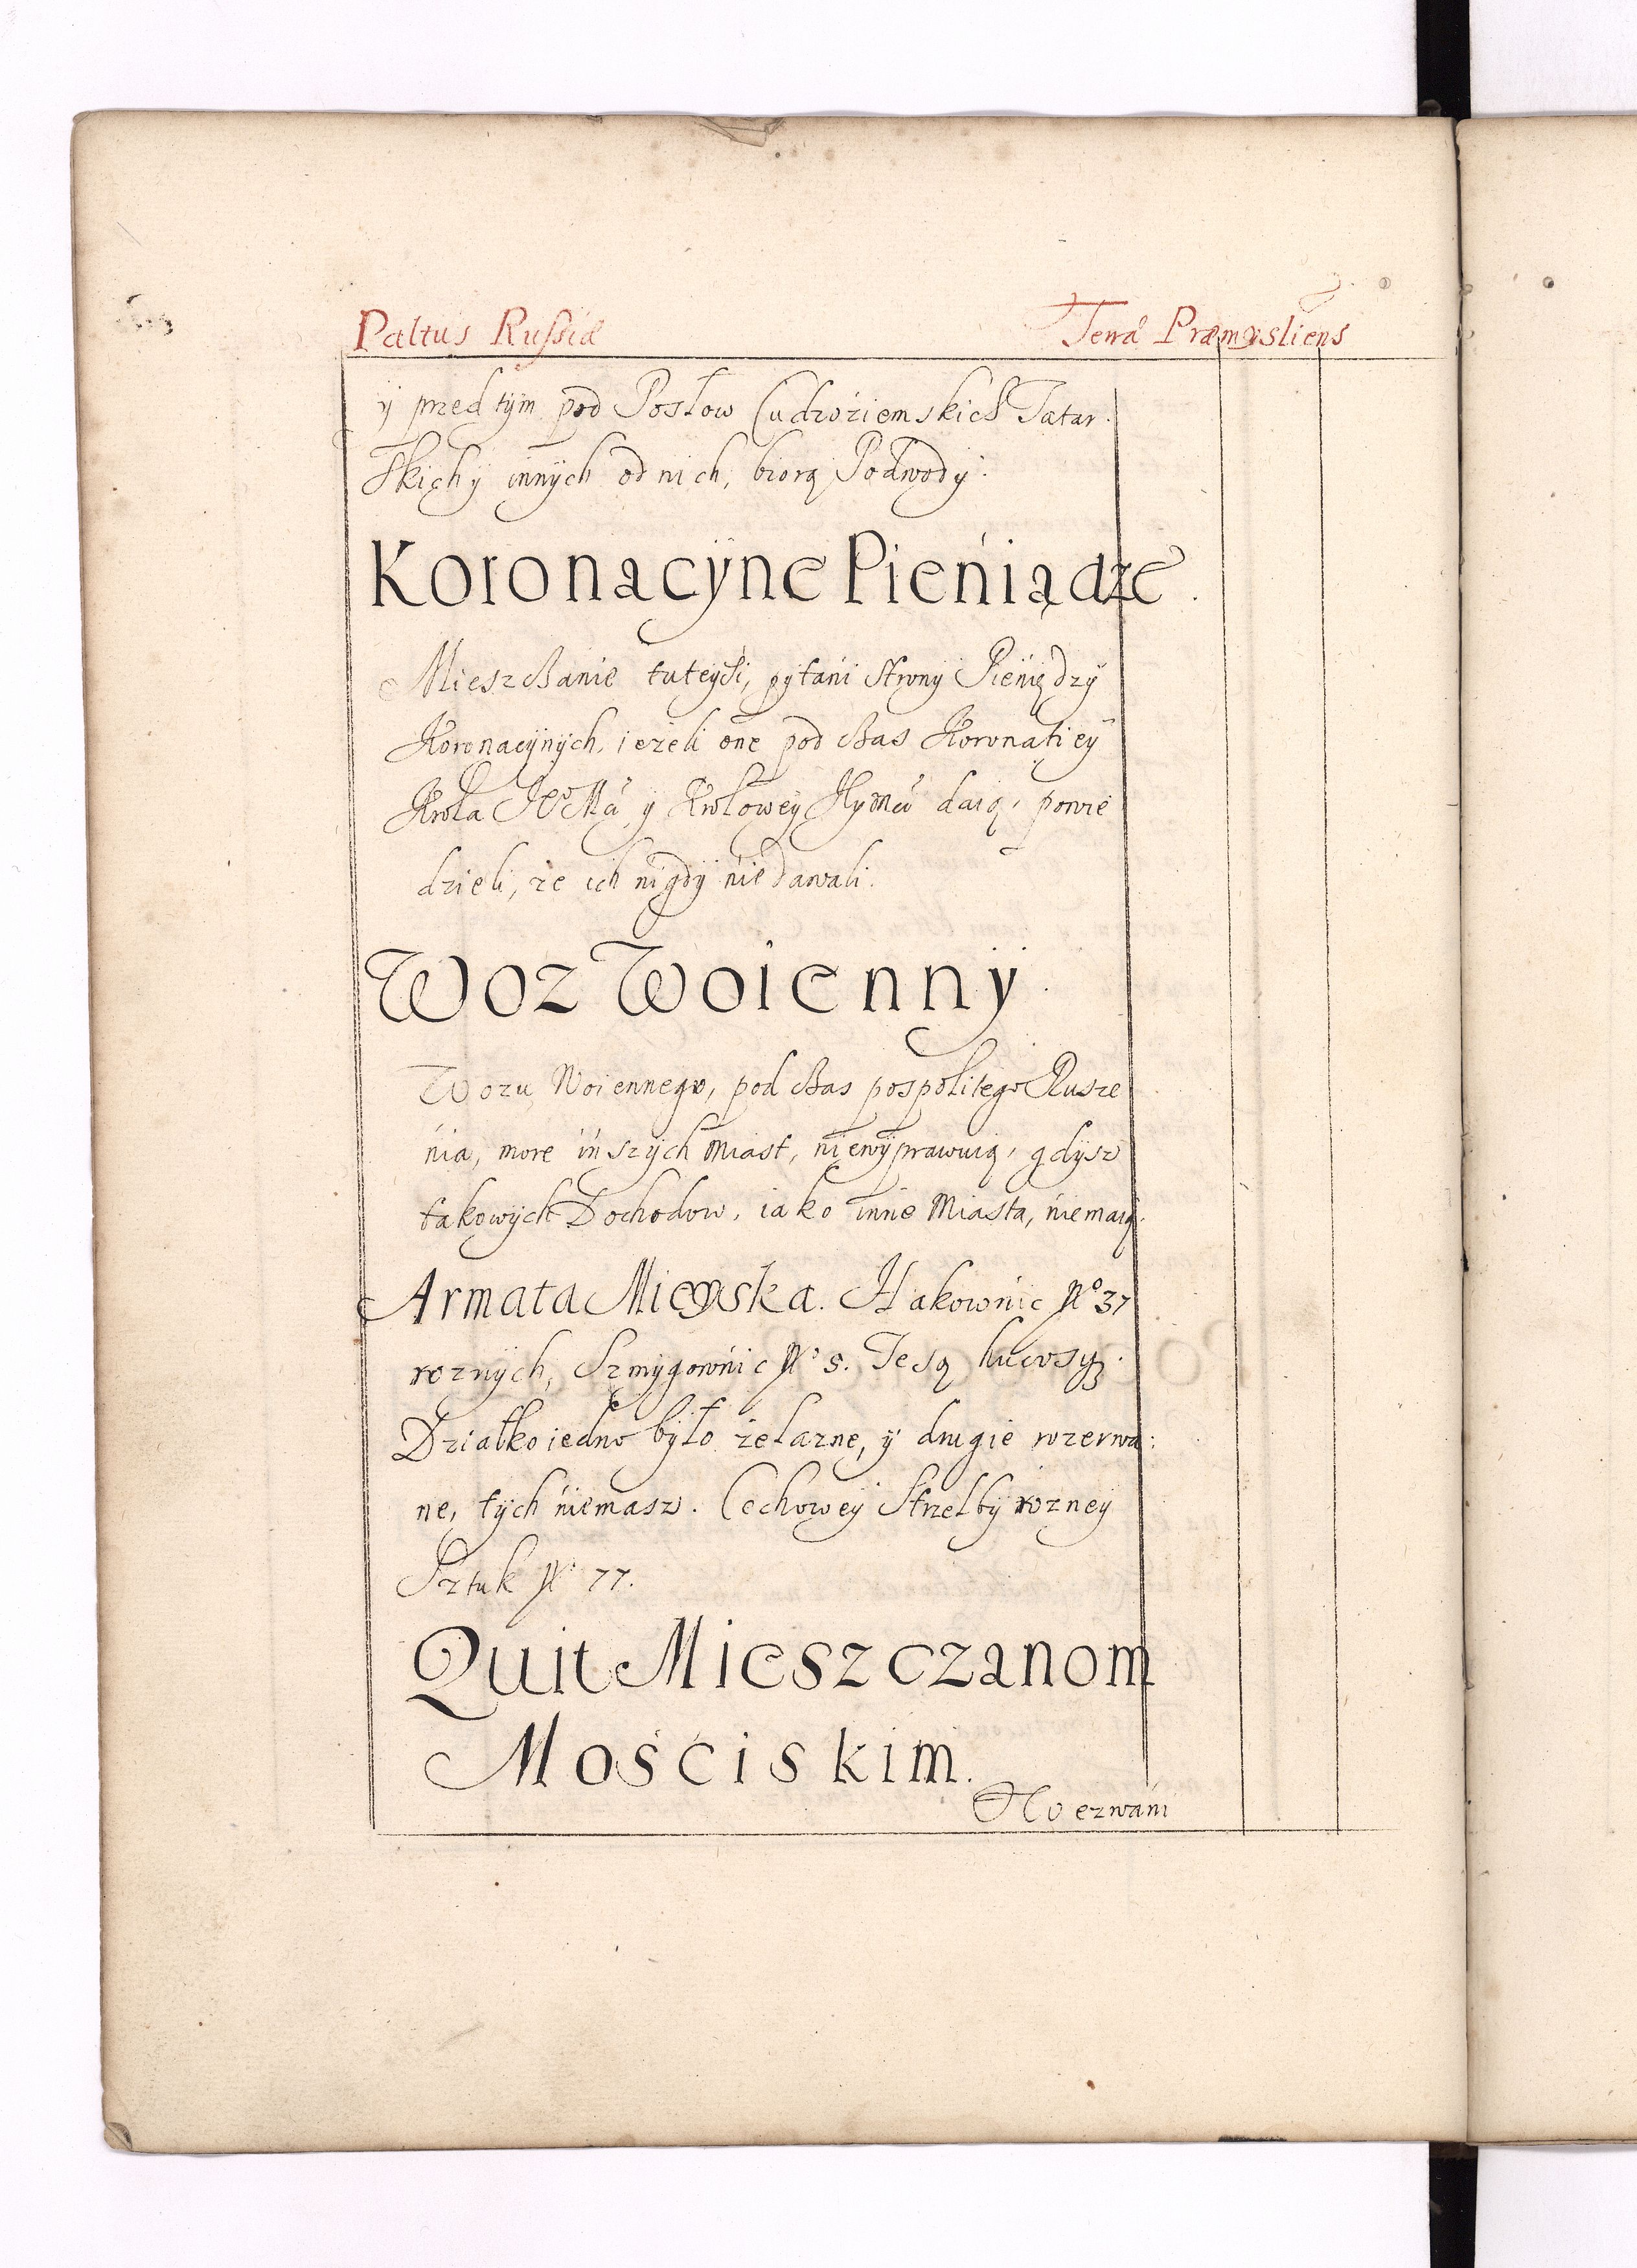 Paltus Russiæ Terra Præmysliens
y przed tym pod Posłow Cudzoziemskich Tatar.
skich y innych od nich, biorą Podwody.
Koronacyine Pieniądze.
Mieszczanie tuteyśi, pytáni strony Pieniędzy
Koronacyinych, iezeli one pod czas Koronatiey
Krola y Krolowey daią, powie
dzieli, że ich nigdy niedawali.
Woz Woienny.
Wozu Woiennego, pod czas pospolitego Rusze
nia, more inszych Miast, niewyprawuią, gdysz
takowych Dochodow, iako inne Miasta, niemaią.
Armata Mieyska. Hakownic No 37
roznych, Szmygownic No 5. Te są
Działko iedno było żelazne, y drugie rozerwa:
ne, tych niemasz. Cechowey Strzelby rozney
Sztuk No 77.
Quit Mieszczanom
Mośćiskim.